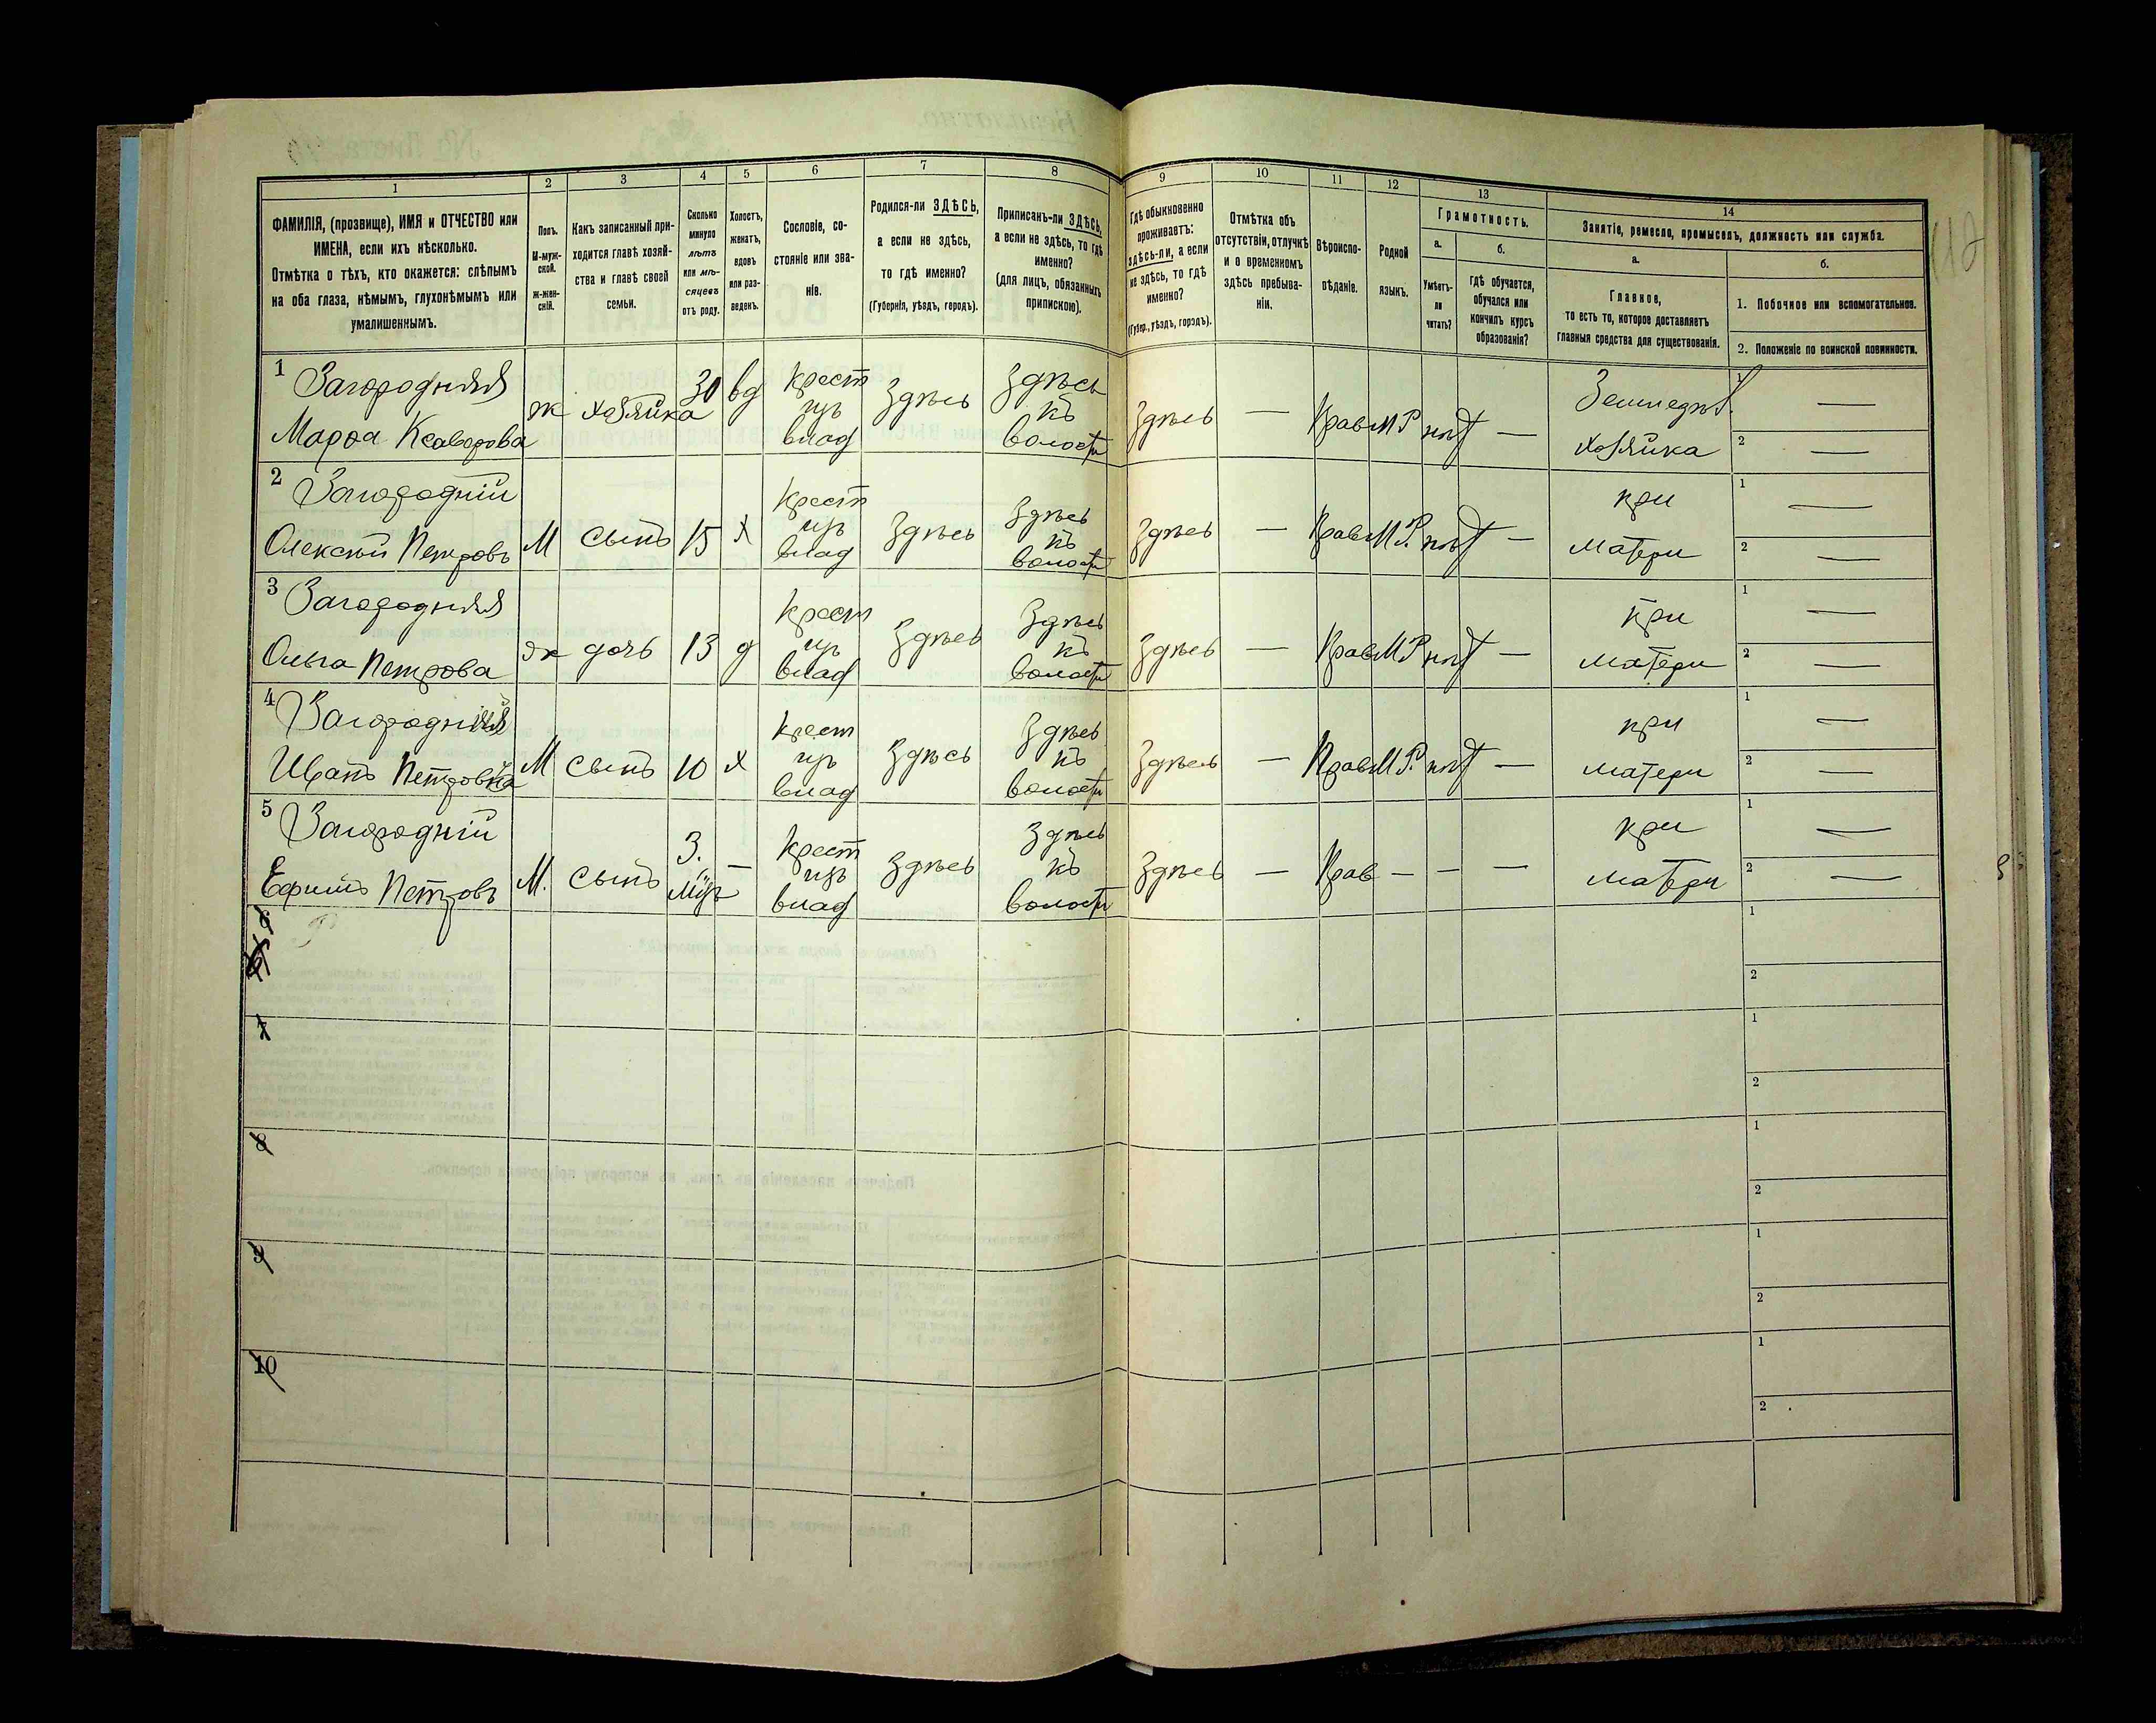 1 2 3 4 5 6 7 8 9 10 11 12 13 14
ФАМИЛІЯ, (прозвище), ИМЯ и ОТЧЕСТВО или
ИМЕНА, если ихъ нѣсколько.
Отмѣтка о тѣхъ, кто окажется: слѣпымъ
на оба глаза, нѣмымъ, глухонѣмымъ или
умалишеннымъ.
Полъ.
М-муж-
ской.
Ж-жен-
скій.
Какъ записанный при-
ходится главѣ хозяй-
ства и главѣ своей
семьи.
Сколько
минуло
лѣтъ
или мѣ-
сяцевъ
отъ роду.
Холостъ,
женатъ,
вдовъ
или раз-
веденъ.
Сословіе, со-
стояніе или зва-
ніе.
Родился-ли ЗДѢСЬ,
а если не здѣсь,
то гдѣ именно?
(Губернія, уѣздъ, городъ).
Приписанъ-ли ЗДѢСЬ,
а если не здѣсь, то гдѣ
именно?
(для лицъ, обязанныхъ
припискою).
Гдѣ обыкновенно
проживаетъ:
здѣсь-ли, а если
не здѣсь, то гдѣ
именно?
(Губер., уѣздъ, городъ).
Отмѣтка объ
отсутствіи, отлучкѣ
и о временномъ
здѣсь пребыва-
ніи.
Вѣроиспо-
вѣданіе.
Родной
языкъ.
Грамотность.
а.
Умѣетъ-
ли
читать?
б.
Гдѣ обучается,
обучался или
кончилъ курсъ
образованія?
Занятіе, ремесло, промыселъ, должность или служба.
а.
Главное,
то есть то, которое доставляетъ
главныя средства для существованія.
б.
1. Побочное или вспомогательное.
2. Положеніе по воинской повинности.
1 Загородняя
Марфа Ксаверова
ж хозяйка 30 вд
крест
изъ
влад
Здѣсь
Здѣсь
къ
волости
Здѣсь — Прав М Р нѣт —
Земледѣл.
хозяйка
1 —
2 —
2 Загородній
Олексѣй Петровъ
М сынъ 15 х
крест
изъ
влад
Здѣсь
Здѣсь
къ
волости
Здѣсь — Прав М Р. нѣт —
при
матери
1 —
2 —
3 Загородняя
Ольга Петрова
ж дочь 13 д
крест
изъ
влад
Здѣсь
Здѣсь
къ
волости
Здѣсь — Прав М Р нѣт —
при
матери
1 —
2 —
4 Загородній
Иванъ
М сынъ 10 х
крест
изъ
влад
Здѣсь
Здѣсь
къ
волости
Здѣсь — Прав М Р. нѣт —
при
матери
1 —
2 —
5 Загородній
Ефимъ Петровъ
М. сынъ
3.
—
крест
изъ
влад
Здѣсь
Здѣсь
къ
волости
Здѣсь — Прав — — —
при
матери
1 —
2 —
6
1
2
7
1
2
8
1
2
9
1
2
10
1
2